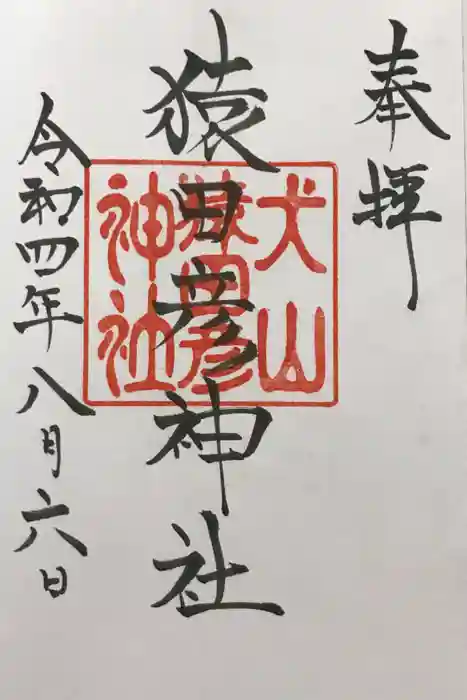 奉拝
猿田彦神社
犬山
猿田彦
神社
令和四年八月六日